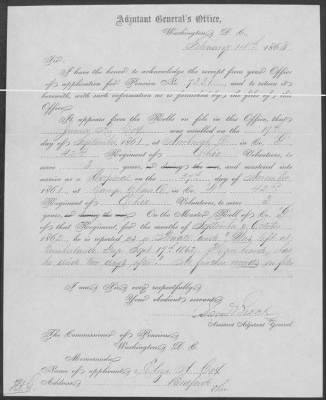 Adjutant General's Office,
Washington, D. C.
February 1863.
Sir:
I have the honor to acknowledge the receipt from your Office
of application for Pension No. 7331, and to return it
herewith, with such information as is furnished by the files of this
Office.
It appears from the Rolls on file in this Office, that
was enrolled on the 17th
day of September 1861, at in Co. D
42d Regiment of Ohio Volunteers, to serve
3 years, or during the war, and mustered into
service as a on the 27th day of November
1861, at Camp Chase O. in Co. D 42d
Regiment of Ohio Volunteers, to serve 3
years, or during the war. On the Muster Roll of Co. D
of that Regiment, for the months of September & October
1862, he is reported as a Private Was left at
Cumberland Gap Sept. 17th 1862.
two days after. No further record on file
I am, Sir, very respectfully,
Your obedient servant,
Assistant Adjutant General.
The Commissioner of Pensions,
Washington, D. C.
Memoranda:
Name of applicant, Cox
Address, Bedford
Ohio